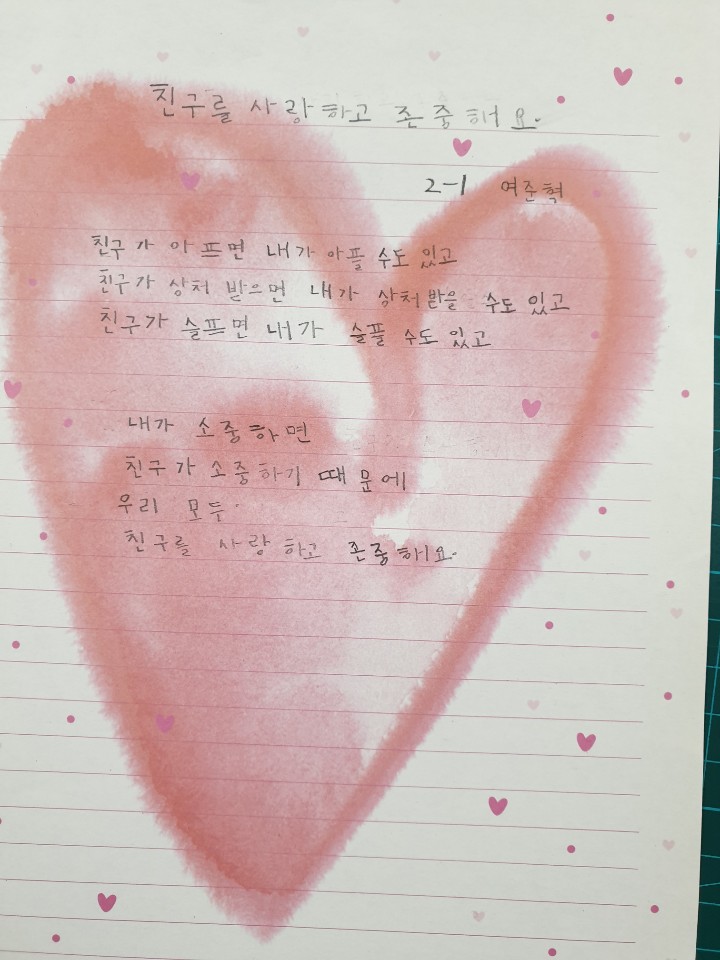 친구를 사랑하고 존중해요.
2-1 여준혁
친구가 아프면 내가 아플 수도 있고
친구가 상처 받으면 내가 상처받을 수도 있고
친구가 슬프면 내가 슬플 수도 있고
내가 소중하면
친구가 소중하기 때문에
우리 모두
친구를 사랑하고 존중해요.